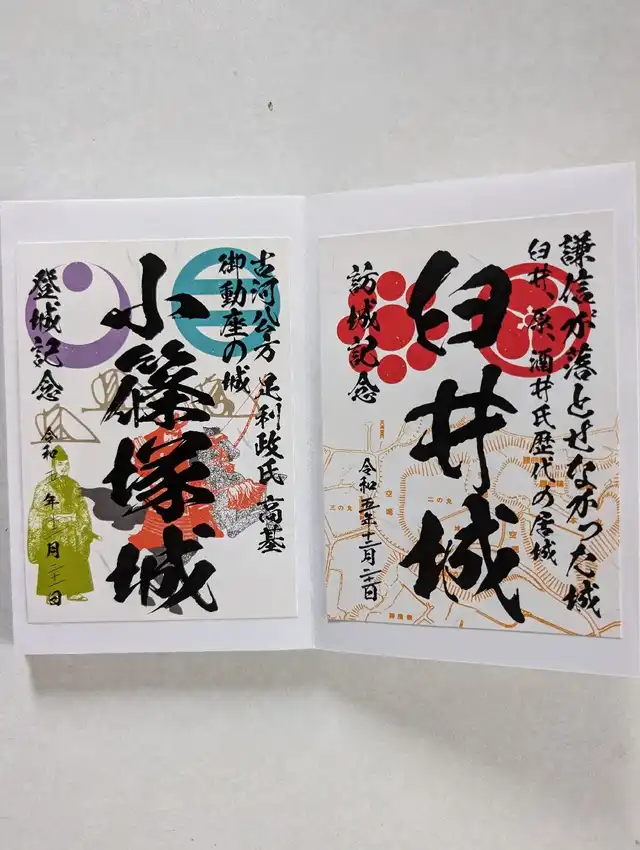 古河公方 足利政氏 高基
御動座の城
小篠塚城
登城記念
令和 年 月二十二日
謙信が落とせなかった城
臼井、原、酒井氏歴代の居城
臼井城
訪城記念
令和五年十二月二十二日
二の丸
三の丸
空堀
空堀